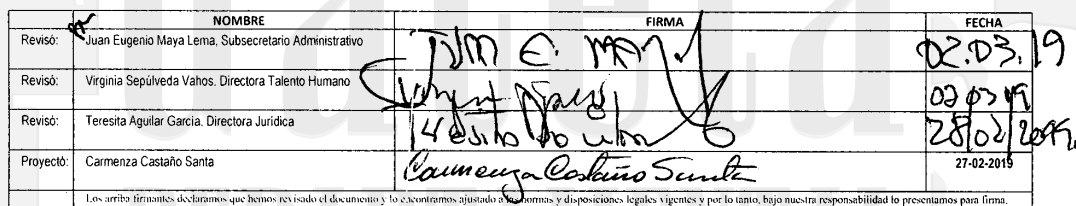 NOMBRE FIRMA FECHA
Revisó: Juan Eugenio Maya Lema, Subsecretario Administrativo Juan E. May 02.03.19
Revisó: Virginia Sepúlveda Vahos. Directora Talento Humano Virginia 02 03 19
Revisó: Teresita Aguilar García. Directora Jurídica Teresita 28/02/2019
Proyectó: Carmenza Castaño Santa Carmenza Castaño Santa 27-02-2019
Los arriba firmantes declaramos que hemos revisado el documento y lo encontramos ajustado a las normas y disposiciones legales vigentes y por lo tanto, bajo nuestra responsabilidad lo presentamos para firma.